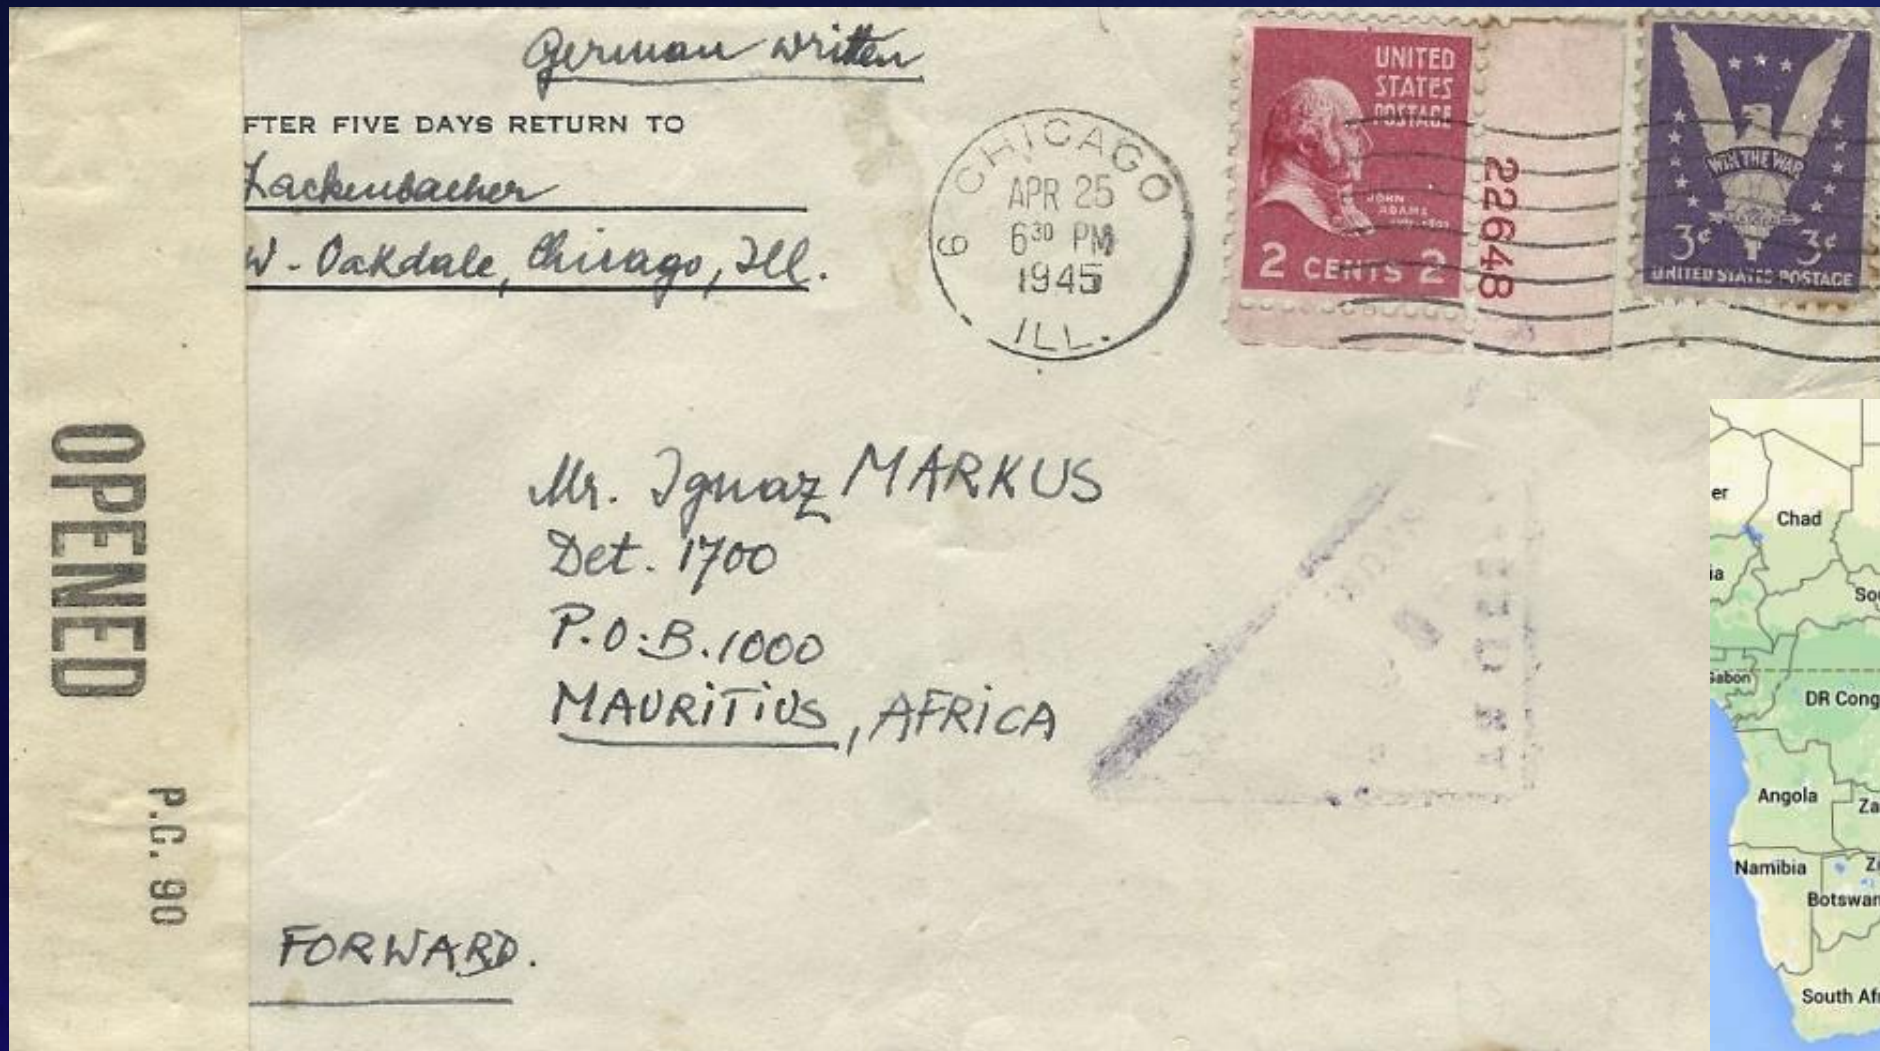 German written
FTER FIVE DAYS RETURN TO
Lackenbacher
W. Oakdale, Chicago, Ill.
6 CHICAGO
APR 25
6 30 PM
1945
ILL.
UNITED
STATES
POSTAGE
JOHN
ADAMS
2 CENTS 2
22648
WIN THE WAR
3¢ 3¢
UNITED STATES POSTAGE
OPENED
P.C. 90
Mr. Ignaz MARKUS
Det. 1700
P.O.B. 1000
MAURITIUS, AFRICA
FORWARD.
er
Chad
ia
Sou
Gabon
DR Cong
Angola
Za
Namibia
Botswan
South Afr